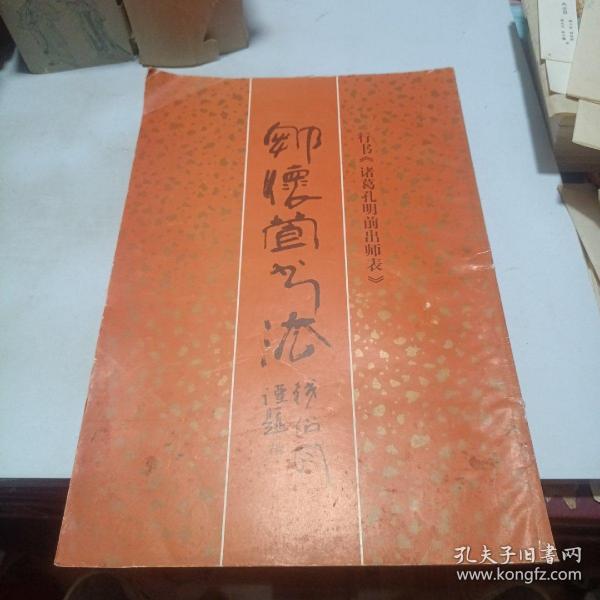 行书《诸葛孔明前出师表》
邹怀萱书法
谨题
孔夫子旧书网
www.kongfz.com